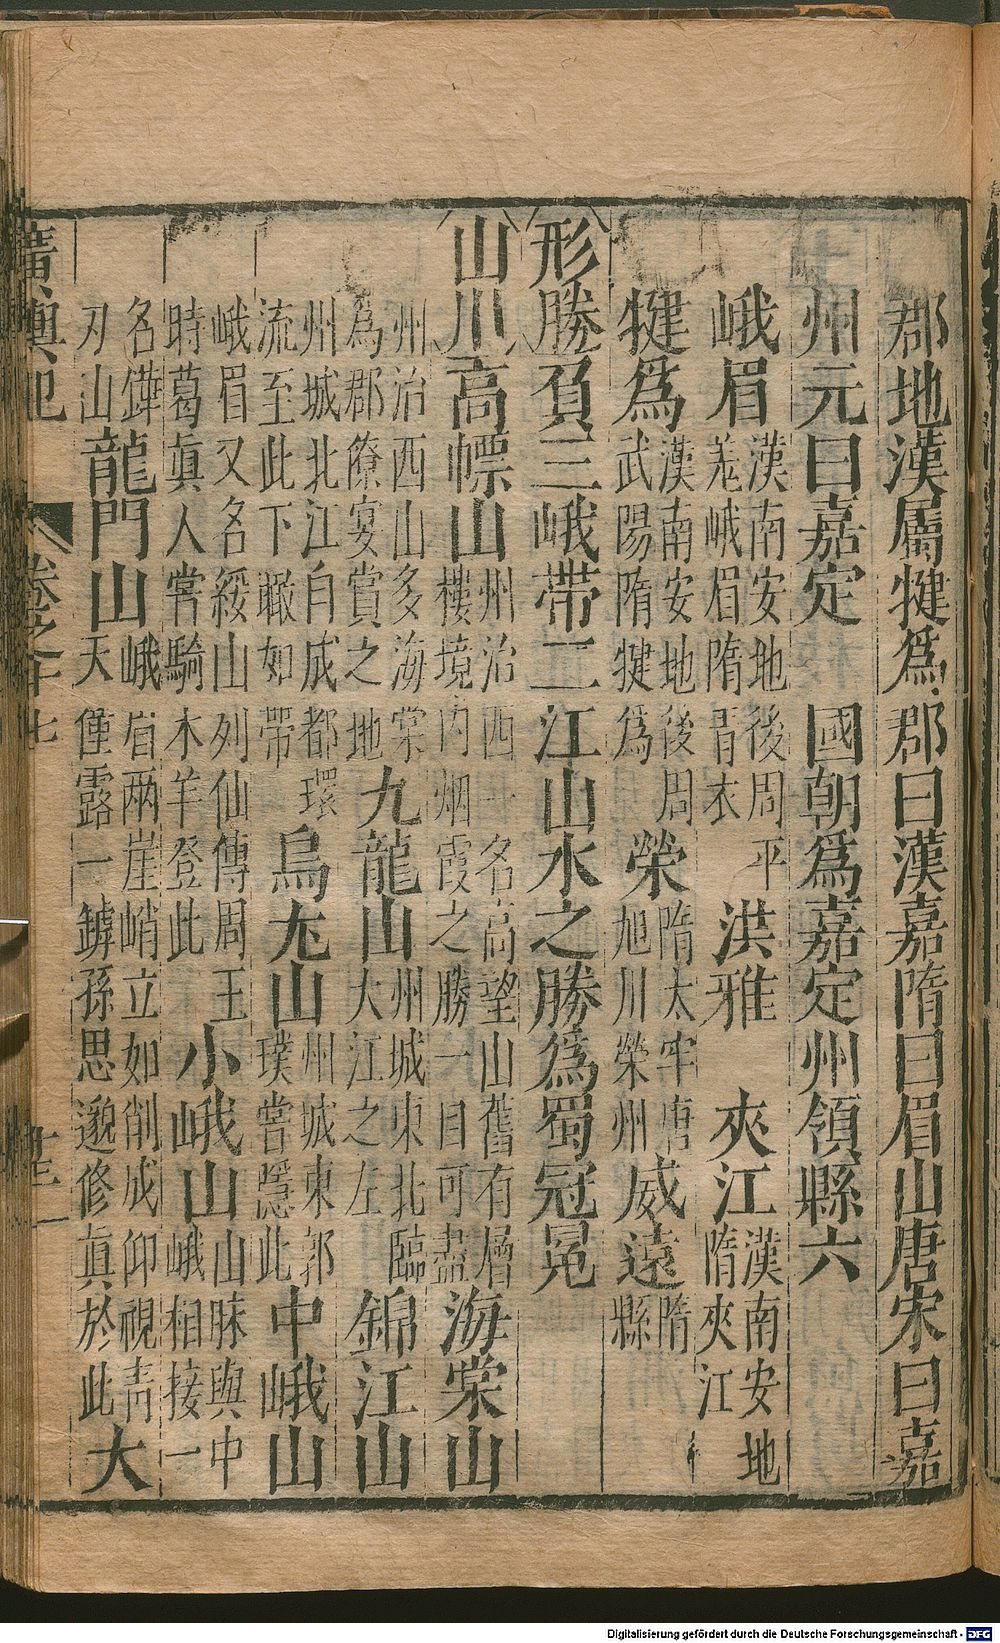 郡地漢屬犍爲郡曰漢嘉隋曰眉山唐宋曰嘉
州元曰嘉定 國朝爲嘉定州領縣六
峨眉 漢南安地後周平羌峨眉隋青衣 洪雅 夾江 漢南安地隋夾江
犍爲 漢南安地後周武陽隋犍爲 榮 隋大牢唐旭川榮州 威遠 隋縣
形勝 負三峨帶二江山水之勝爲蜀冠冕
山川 高幖山 州治西一名高望山舊有層樓境内烟霞之勝一目可盡 海棠山
州治西山多海棠爲郡僚宴賞之地 九龍山 州城東北臨大江之左 錦江山
州城北江自成都環流至此下瞰如帶 烏尤山 州城東郭璞嘗隱此 中峨山
峨眉又名綏山列仙傳周王時葛眞人嘗騎木羊登此 小峨山 山脉與中峨相接一
名鏵刃山 龍門山 峨眉兩崖峭立如削成仰視青天僅露一罅孫思邈修眞於此 大
廣輿記 卷之十七 十三
Digitalisierung gefördert durch die Deutsche Forschungsgemeinschaft - DFG